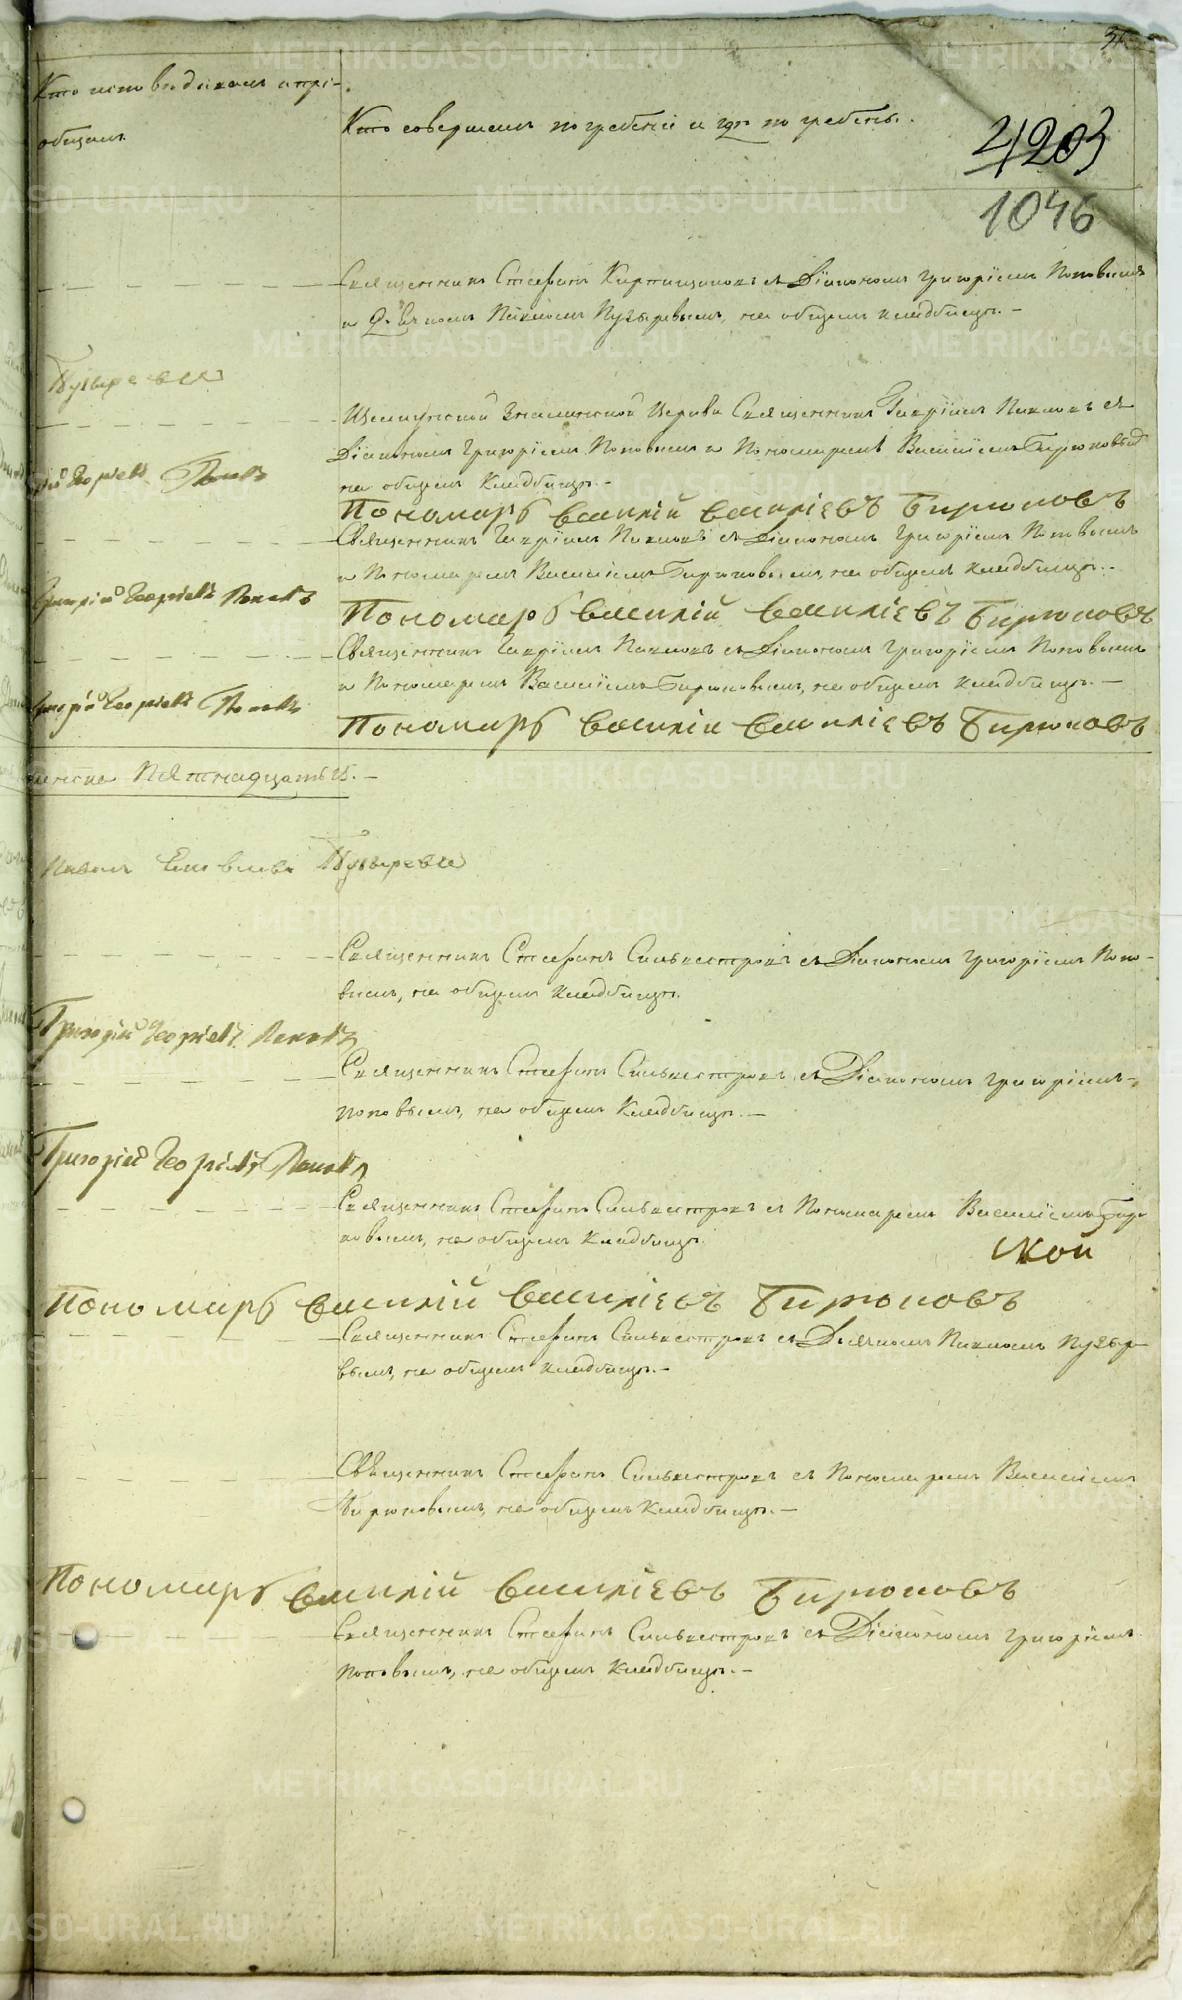 Кто исповѣдивалъ и прі-
общалъ.
Кто совершалъ погребеніе и гдѣ погребены.
4203
1046
Священникъ Стефанъ съ Діакономъ Григоріемъ Поповымъ
и Павломъ Пузыревымъ, на общемъ кладбищѣ.-
Пузыревъ
Церкви Священникъ Гавріилъ съ
Діакономъ Григоріемъ Поповымъ и Пономаремъ Василіемъ Бирюковымъ
на общемъ кладбищѣ.-
Георгіевъ Поповъ
Пономарь Василій Василіевъ Бирюковъ
Священникъ Гавріилъ съ Діакономъ Григоріемъ Поповымъ
и Пономаремъ Василіемъ Бирюковымъ, на общемъ кладбищѣ.-
Григорій Георгіевъ Поповъ
Пономарь Василій Василіевъ Бирюковъ
Священникъ Гавріилъ съ Діакономъ Григоріемъ Поповымъ
и Пономаремъ Василіемъ Бирюковымъ, на общемъ кладбищѣ.-
Григорій Георгіевъ Поповъ
Пономарь Василій Василіевъ Бирюковъ
Пятнадцать 15.-
Павелъ Пузыревъ
Священникъ Стефанъ Сильвестровъ съ Діакономъ Григоріемъ Попо-
вымъ, на общемъ кладбищѣ.
Григорій Георгіевъ Поповъ
Священникъ Стефанъ Сильвестровъ съ Діакономъ Григоріемъ
Поповымъ, на общемъ кладбищѣ.-
Григорій Георгіевъ Поповъ
Священникъ Стефанъ Сильвестровъ съ Пономаремъ Василіемъ Бирю-
ковымъ, на общемъ кладбищѣ.
Пономарь Василій Василіевъ Бирюковъ
Священникъ Стефанъ Сильвестровъ съ Дьячкомъ Павломъ Пузыре-
вымъ, на общемъ кладбищѣ.-
Священникъ Стефанъ Сильвестровъ съ Пономаремъ Василіемъ
Бирюковымъ, на общемъ кладбищѣ.-
Пономарь Василій Василіевъ Бирюковъ
Священникъ Стефанъ Сильвестровъ съ Діакономъ Григоріемъ
Поповымъ, на общемъ кладбищѣ.-
METRIKI.GASO-URAL.RU